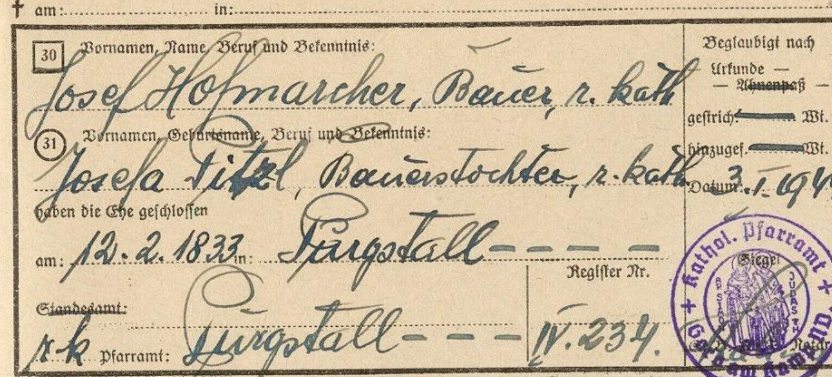 † am: in:
30 Vornamen, Name, Beruf und Bekenntnis:
Josef Hofmarcher, Bauer, r. kath
31 Vornamen, Geburtsname, Beruf und Bekenntnis:
Josefa Pitzl, Bauerstochter, r. kath.
haben die Ehe geschlossen
am: 12. 2. 1833 in: Purgstall
Standesamt:
r k Pfarramt: Purgstall
Register Nr.
IV. 234.
Beglaubigt nach
Urkunde —
— Ahnenpaß —
gestrich. Wt.
hinzugef. Wt.
Datum: 3. I. 194
Siegel
+ Kathol. Pfarramt +